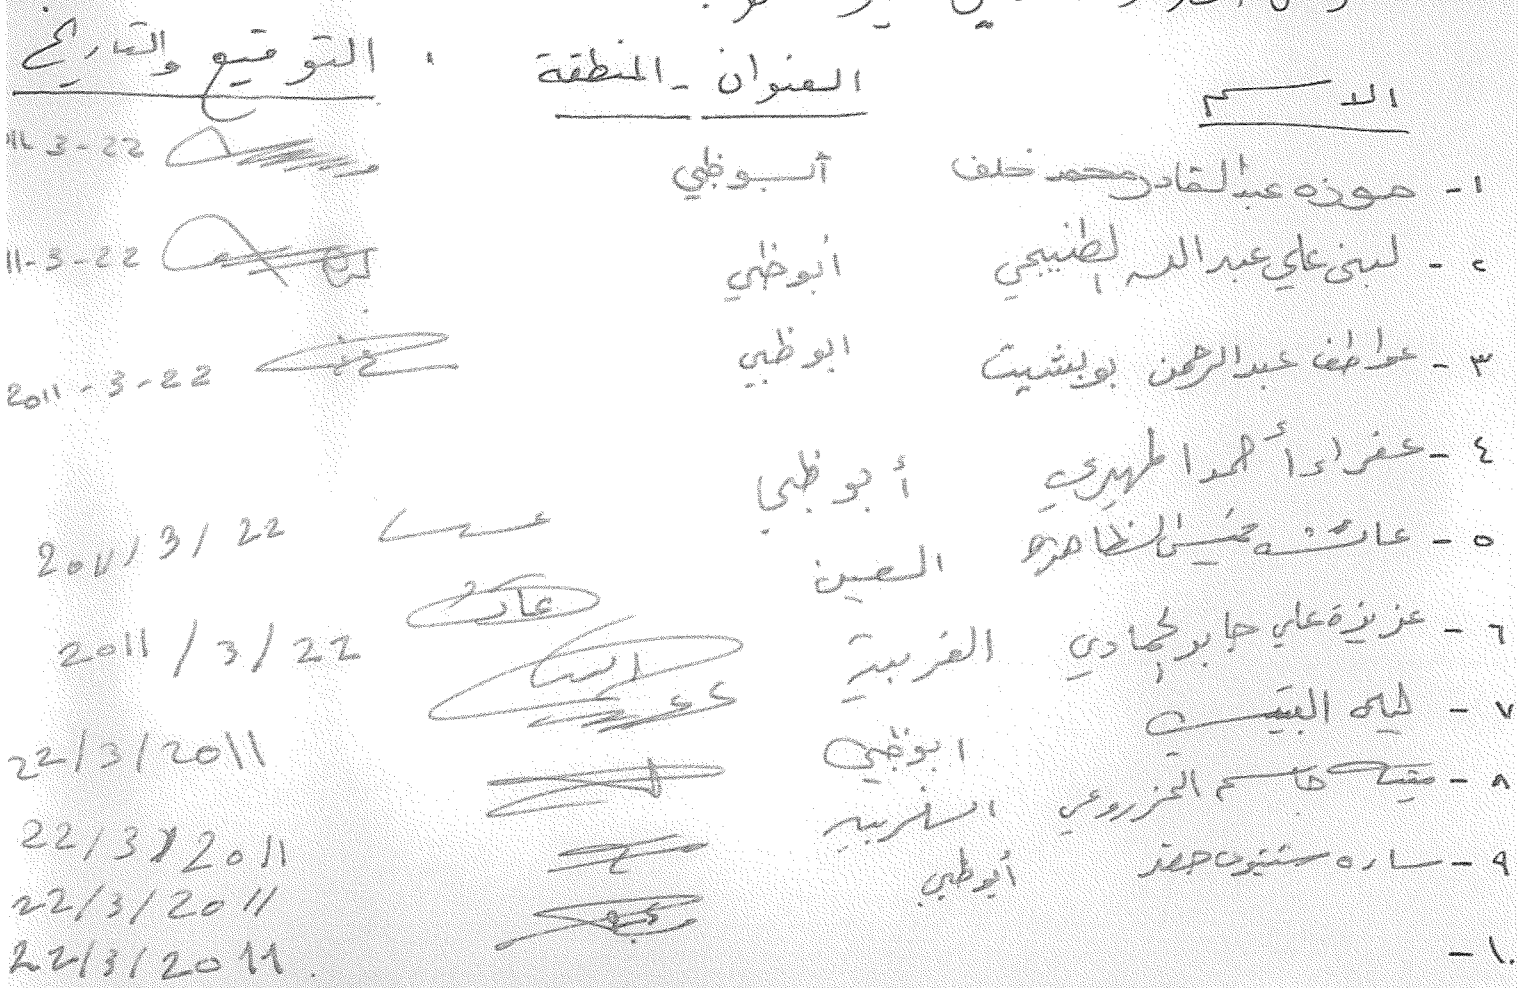 الاسم العنوان - المنطقة التوقيع والتاريخ
١- موزه عبدالقادر محمد خلف أبوظبي 22-3-11
٢- لبنى علي عبدالله الطنيجي أبوظبي 22-3-11
٣- عواطف عبدالرحمن بوبشيت ابوظبي 22-3-2011
٤- عفراء أحمد المهيري أبوظبي
٥- عائشه خميس الظاهري العين 22/3/2011
٦- عزيزة علي جابر الحمادي الغربية 22/3/2011
٧- ابوظبي 22/3/2011
٨- جاسم المزروعي الغربية 22/3/2011
٩- ساره أبوظبي 22/3/2011
١٠- 22/3/2011